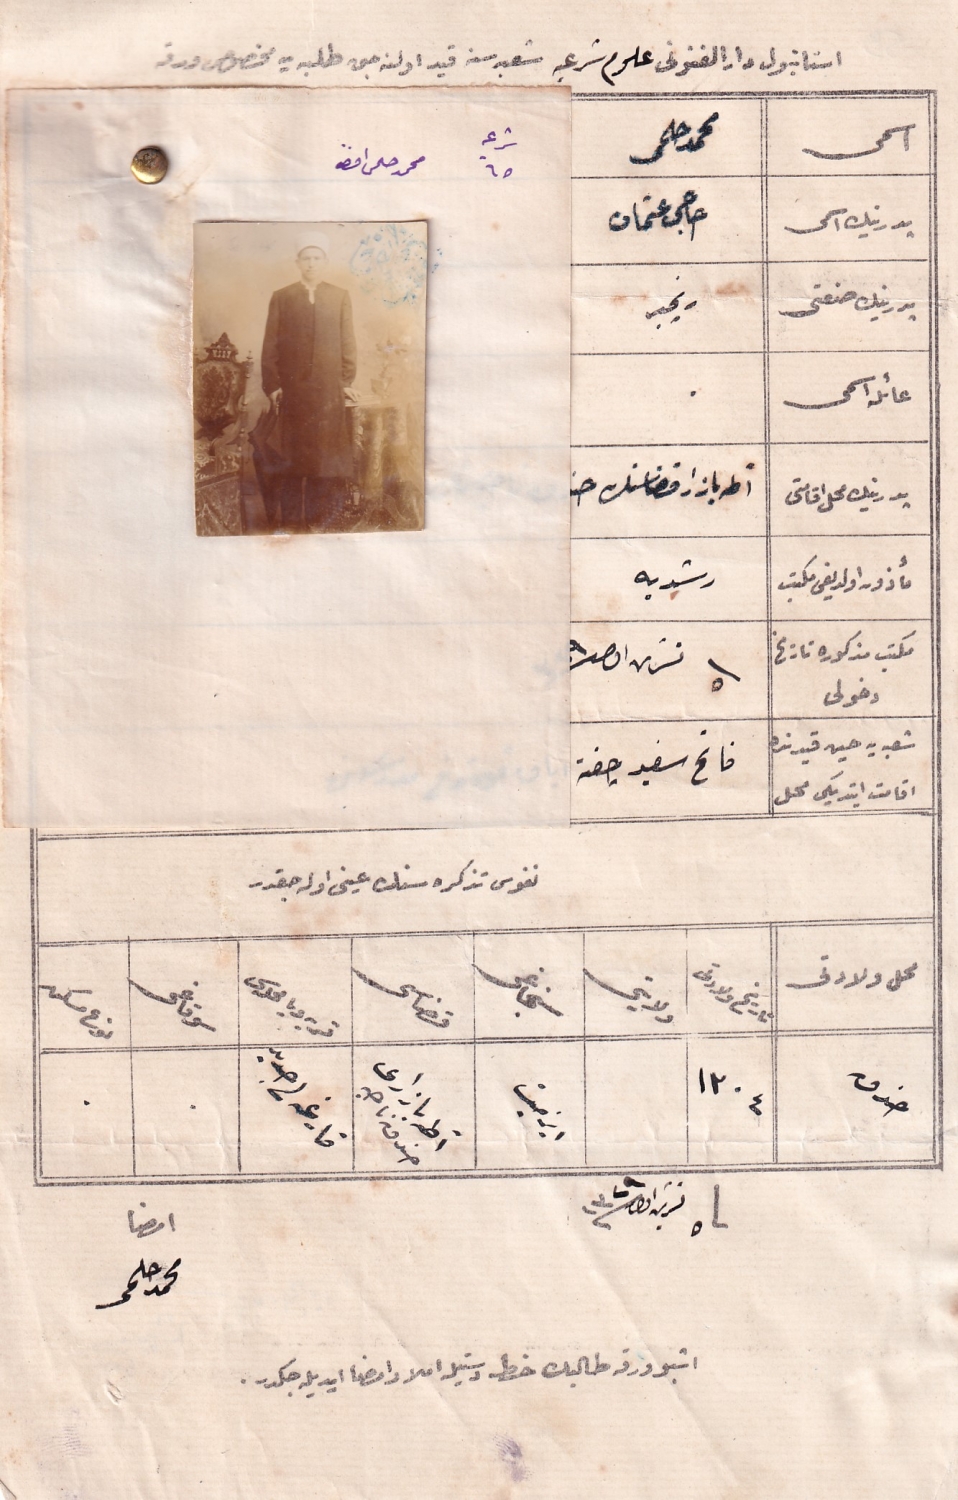 استانبول دار الفنونی علوم شرعیه شعبه سنه قید اولنه جق طلبه یه مخصوص ورقه
شرعیه
٦٥ محمد حلمی افندی
اسمی محمد حلمی
پدرینك اسمی حاجی عثمان
پدرینك صنعتی رنجبر
عائله اسمی ٠
پدرینك محل اقامتی آطه بازار قضاسنك
مأذون اولدیغی مكتب رشدیه
مكتب مذكوره تاریخ دخولی تشرین اول
شعبه یه حین قیدنده اقامت ایتدیكی محل فاتح
نفوس تذكره سنك عینی اوله جقدر
محل ولادتی تاریخ ولادتی ولایتی سنجاغی قضاسی قریه ویا محله سی سوقاغی نوع مسكن
خندق ١٣٠٤ ازمیت آطه بازاری خندق ناحیه ٠ ٠
٥ تشرین اول
امضا
محمد حلمی
اشبو ورقه طالبك خط دستیله املا و امضا ایدیله جكدر .